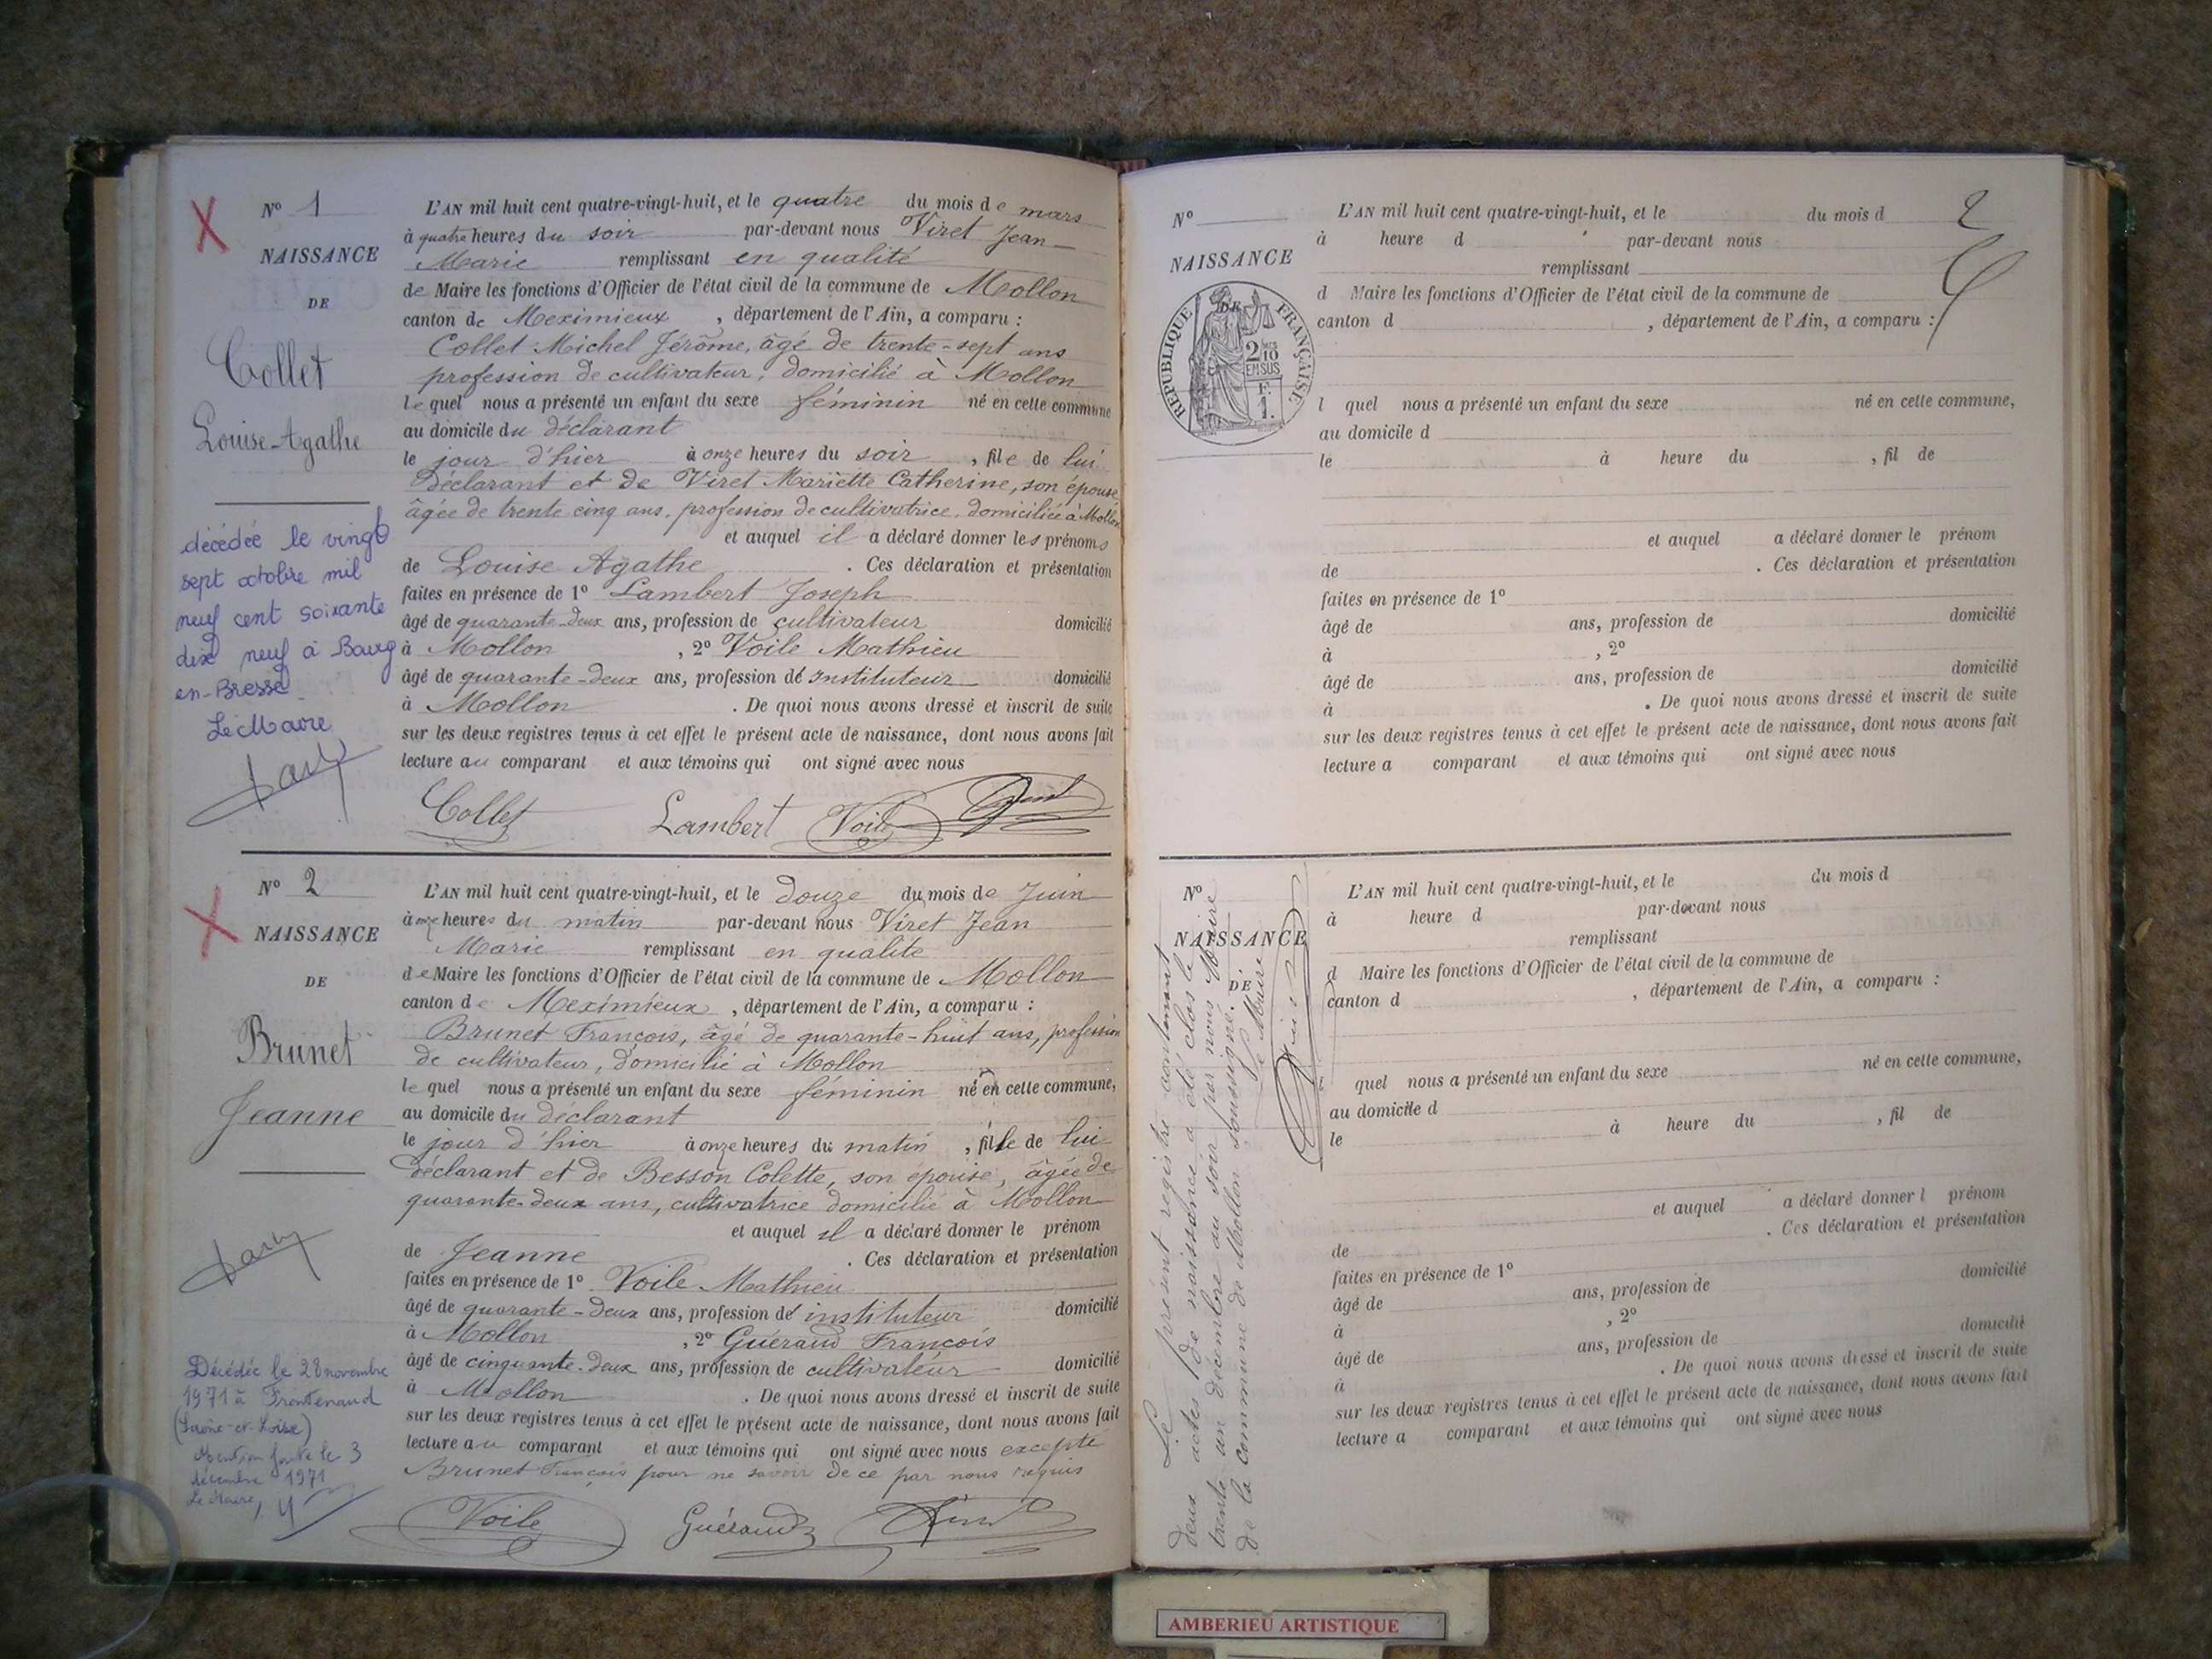 N° 1
NAISSANCE
DE
Collet
Louise-Agathe
décédée le vingt
sept octobre mil
neuf cent soixante
dix neuf à Bourg
en-Bresse
Le Maire
L'AN mil huit cent quatre-vingt-huit, et le quatre du mois de mars
à quatre heures du soir par-devant nous Viret Jean
Marie remplissant en qualité
de Maire les fonctions d'Officier de l'état civil de la commune de Mollon
canton de Meximieux, département de l'Ain, a comparu :
Collet Michel Jérôme, âgé de trente-sept ans
profession de cultivateur, domicilié à Mollon
le quel nous a présenté un enfant du sexe féminin né en cette commune
au domicile du déclarant
le jour d'hier à onze heures du soir, file de lui
déclarant et de Viret Mariette Catherine, son épouse
âgée de trente cinq ans, profession de cultivatrice, domiciliée à Mollon
et auquel il a déclaré donner les prénoms
de Louise Agathe . Ces déclaration et présentation
faites en présence de 1° Lambert Joseph
âgé de quarante-deux ans, profession de cultivateur domicilié
à Mollon , 2° Voile Mathieu
âgé de quarante-deux ans, profession de instituteur domicilié
à Mollon . De quoi nous avons dressé et inscrit de suite
sur les deux registres tenus à cet effet le présent acte de naissance, dont nous avons fait
lecture au comparant et aux témoins qui ont signé avec nous
Collet Lambert Voile Viret
N° 2
NAISSANCE
DE
Brunet
Jeanne
Décédée le 28 novembre
1971 à Frontenaud
(Saône-et-Loire)
Mention faite le 3
décembre 1971
Le Maire,
L'AN mil huit cent quatre-vingt-huit, et le douze du mois de Juin
à onze heures du matin par-devant nous Viret Jean
Marie remplissant en qualité
de Maire les fonctions d'Officier de l'état civil de la commune de Mollon
canton de Meximieux, département de l'Ain, a comparu :
Brunet François, âgé de quarante-huit ans, profession
de cultivateur, domicilié à Mollon
le quel nous a présenté un enfant du sexe féminin né en cette commune,
au domicile du déclarant
le jour d'hier à onze heures du matin, fille de lui
déclarant et de Besson Colette, son épouse, âgée de
quarante-deux ans, cultivatrice domicilié à Mollon
et auquel il a déclaré donner le prénom
de Jeanne . Ces déclaration et présentation
faites en présence de 1° Voile Mathieu
âgé de quarante-deux ans, profession de instituteur domicilié
à Mollon , 2° Guéraud François
âgé de cinquante-deux ans, profession de cultivateur domicilié
à Mollon . De quoi nous avons dressé et inscrit de suite
sur les deux registres tenus à cet effet le présent acte de naissance, dont nous avons fait
lecture au comparant et aux témoins qui ont signé avec nous excepté
Brunet François pour ne savoir de ce par nous requis
Voile Guéraud Viret
2
N°
NAISSANCE
DE
RÉPUBLIQUE FRANÇAISE
2/10 EN SUS
F. 1.
L'AN mil huit cent quatre-vingt-huit, et le du mois d
à heure d par-devant nous
remplissant
d Maire les fonctions d'Officier de l'état civil de la commune de
canton d , département de l'Ain, a comparu :
l quel nous a présenté un enfant du sexe né en cette commune,
au domicile d
le à heure du , fil de
et auquel a déclaré donner le prénom
de . Ces déclaration et présentation
faites en présence de 1°
âgé de ans, profession de domicilié
à , 2°
âgé de ans, profession de domicilié
à . De quoi nous avons dressé et inscrit de suite
sur les deux registres tenus à cet effet le présent acte de naissance, dont nous avons fait
lecture a comparant et aux témoins qui ont signé avec nous
N°
NAISSANCE
DE
Le présent registre contenant
deux actes de naissance a été clos le
trente un décembre au soir par nous Maire
de la commune de Mollon soussigné.
Le Maire
Viret
L'AN mil huit cent quatre-vingt-huit, et le du mois d
à heure d par-devant nous
remplissant
d Maire les fonctions d'Officier de l'état civil de la commune de
canton d , département de l'Ain, a comparu :
quel nous a présenté un enfant du sexe né en cette commune,
au domicile d
le à heure du , fil de
et auquel a déclaré donner l prénom
de . Ces déclaration et présentation
faites en présence de 1°
âgé de ans, profession de domicilié
à , 2°
âgé de ans, profession de domicilié
à . De quoi nous avons dressé et inscrit de suite
sur les deux registres tenus à cet effet le présent acte de naissance, dont nous avons fait
lecture a comparant et aux témoins qui ont signé avec nous
AMBERIEU ARTISTIQUE